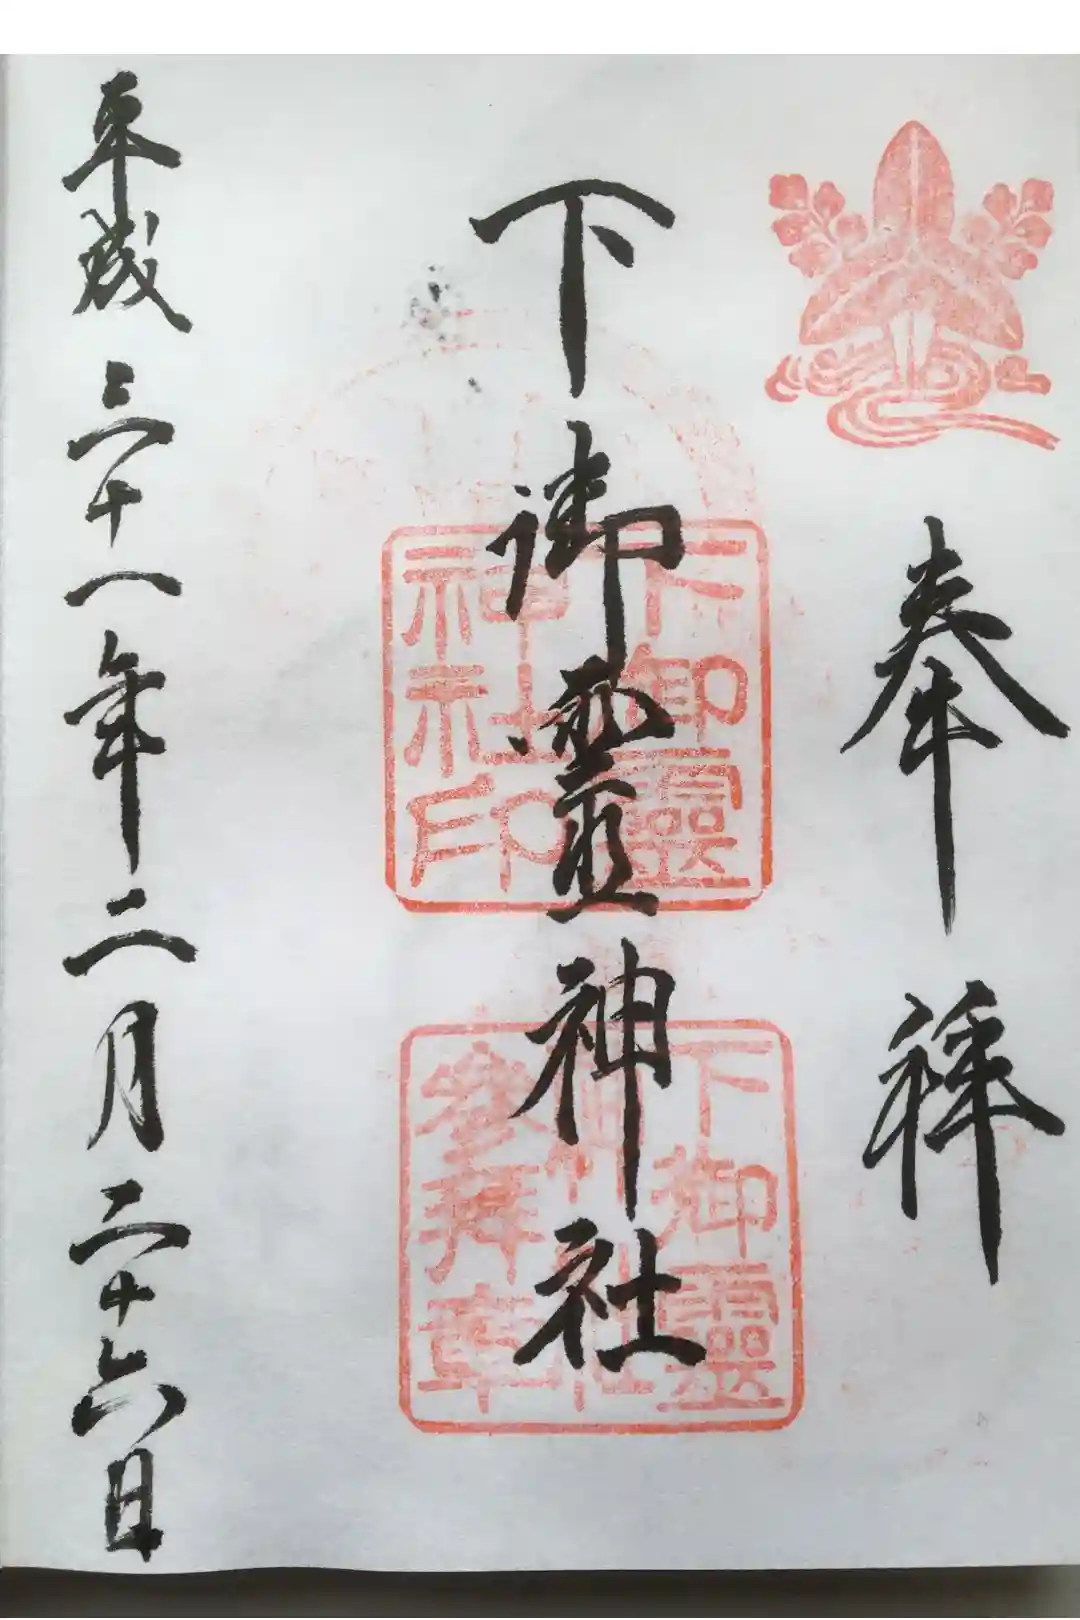 奉拝
下御霊神社
下御靈
神社印
下御靈
神社
参拜章
平成三十一年二月二十六日